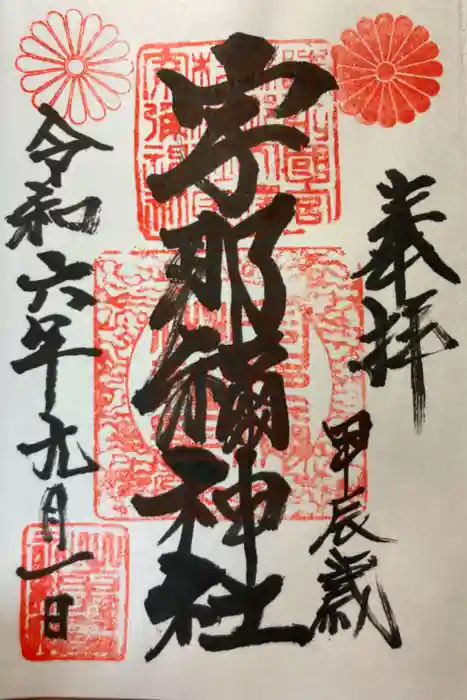 奉拝
甲辰歳
宇那禰神社
令和六年九月一日